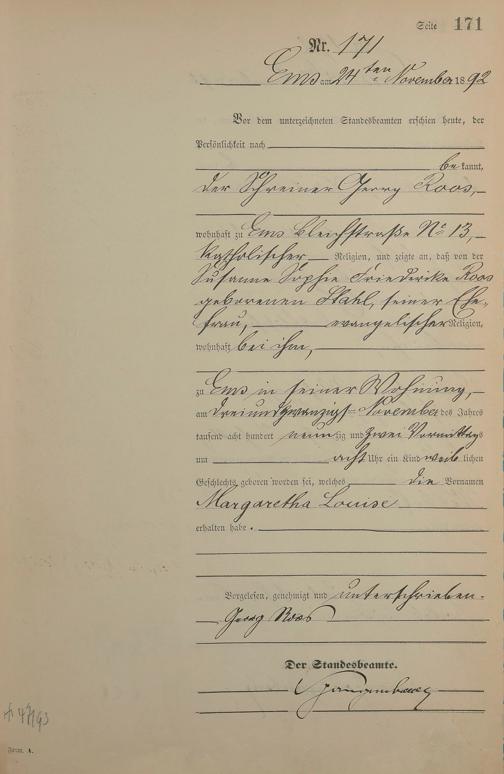 Seite 171
Nr. 171
Ems am 24ten November 1892
Vor dem unterzeichneten Standesbeamten erschien heute, der
Persönlichkeit nach
bekannt,
der Schreiner Georg Roos,
wohnhaft zu Ems Bleichstraße No 13,
katholischer Religion, und zeigte an, daß von der
Susanne Sophie Friederike Roos
geborenen Stahl, seiner Ehe-
frau, evangelischer Religion,
wohnhaft bei ihm,
zu Ems in seiner Wohnung,
am dreiundzwanzigsten November des Jahres
tausend acht hundert neunzig und zwei Vormittags
um acht Uhr ein Kind weiblichen
Geschlechts geboren worden sei, welches die Vornamen
Margaretha Louise
erhalten habe.
Vorgelesen, genehmigt und unterschrieben.
Georg Roos
Der Standesbeamte.
Form. A.